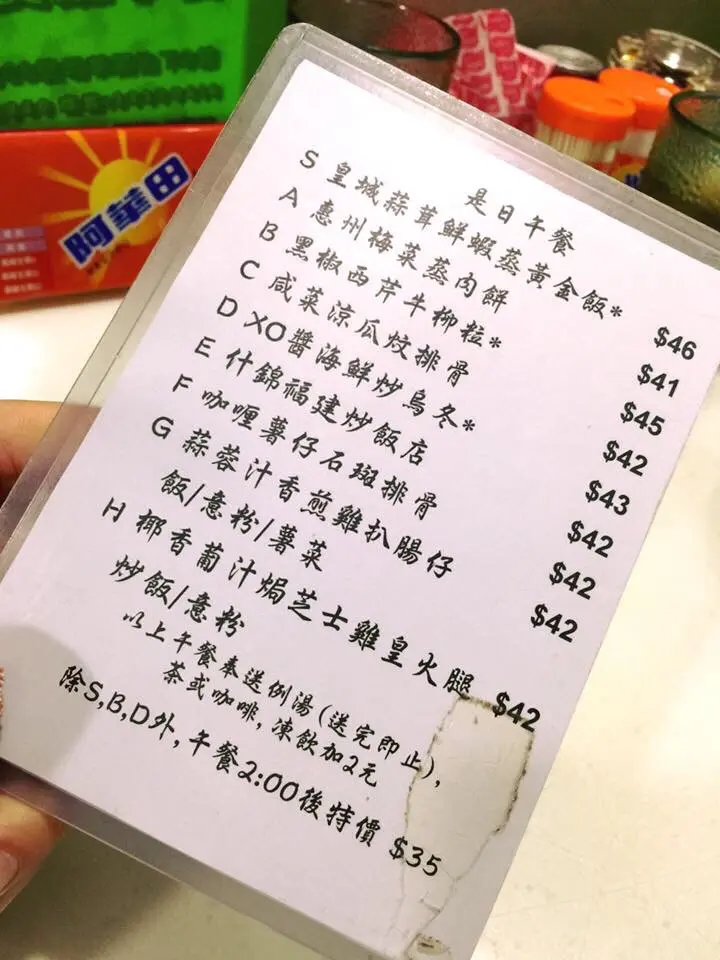 阿華田
是日午餐
S 皇城蒜茸鮮蝦蒸黃金飯* $46
A 惠州梅菜蒸肉餅 $41
B 黑椒西芹牛柳粒* $45
C 咸菜涼瓜炆排骨 $42
D XO醬海鮮炒烏冬* $43
E 什錦福建炒飯店 $42
F 咖喱薯仔石斑排骨 $42
G 蒜蓉汁香煎雞扒腸仔 $42
飯/意粉/薯菜
H 椰香葡汁焗芝士雞皇火腿 $42
炒飯/意粉
以上午餐奉送例湯(送完即止),
茶或咖啡,凍飲加2元
除S,B,D外,午餐2:00後特價 $35